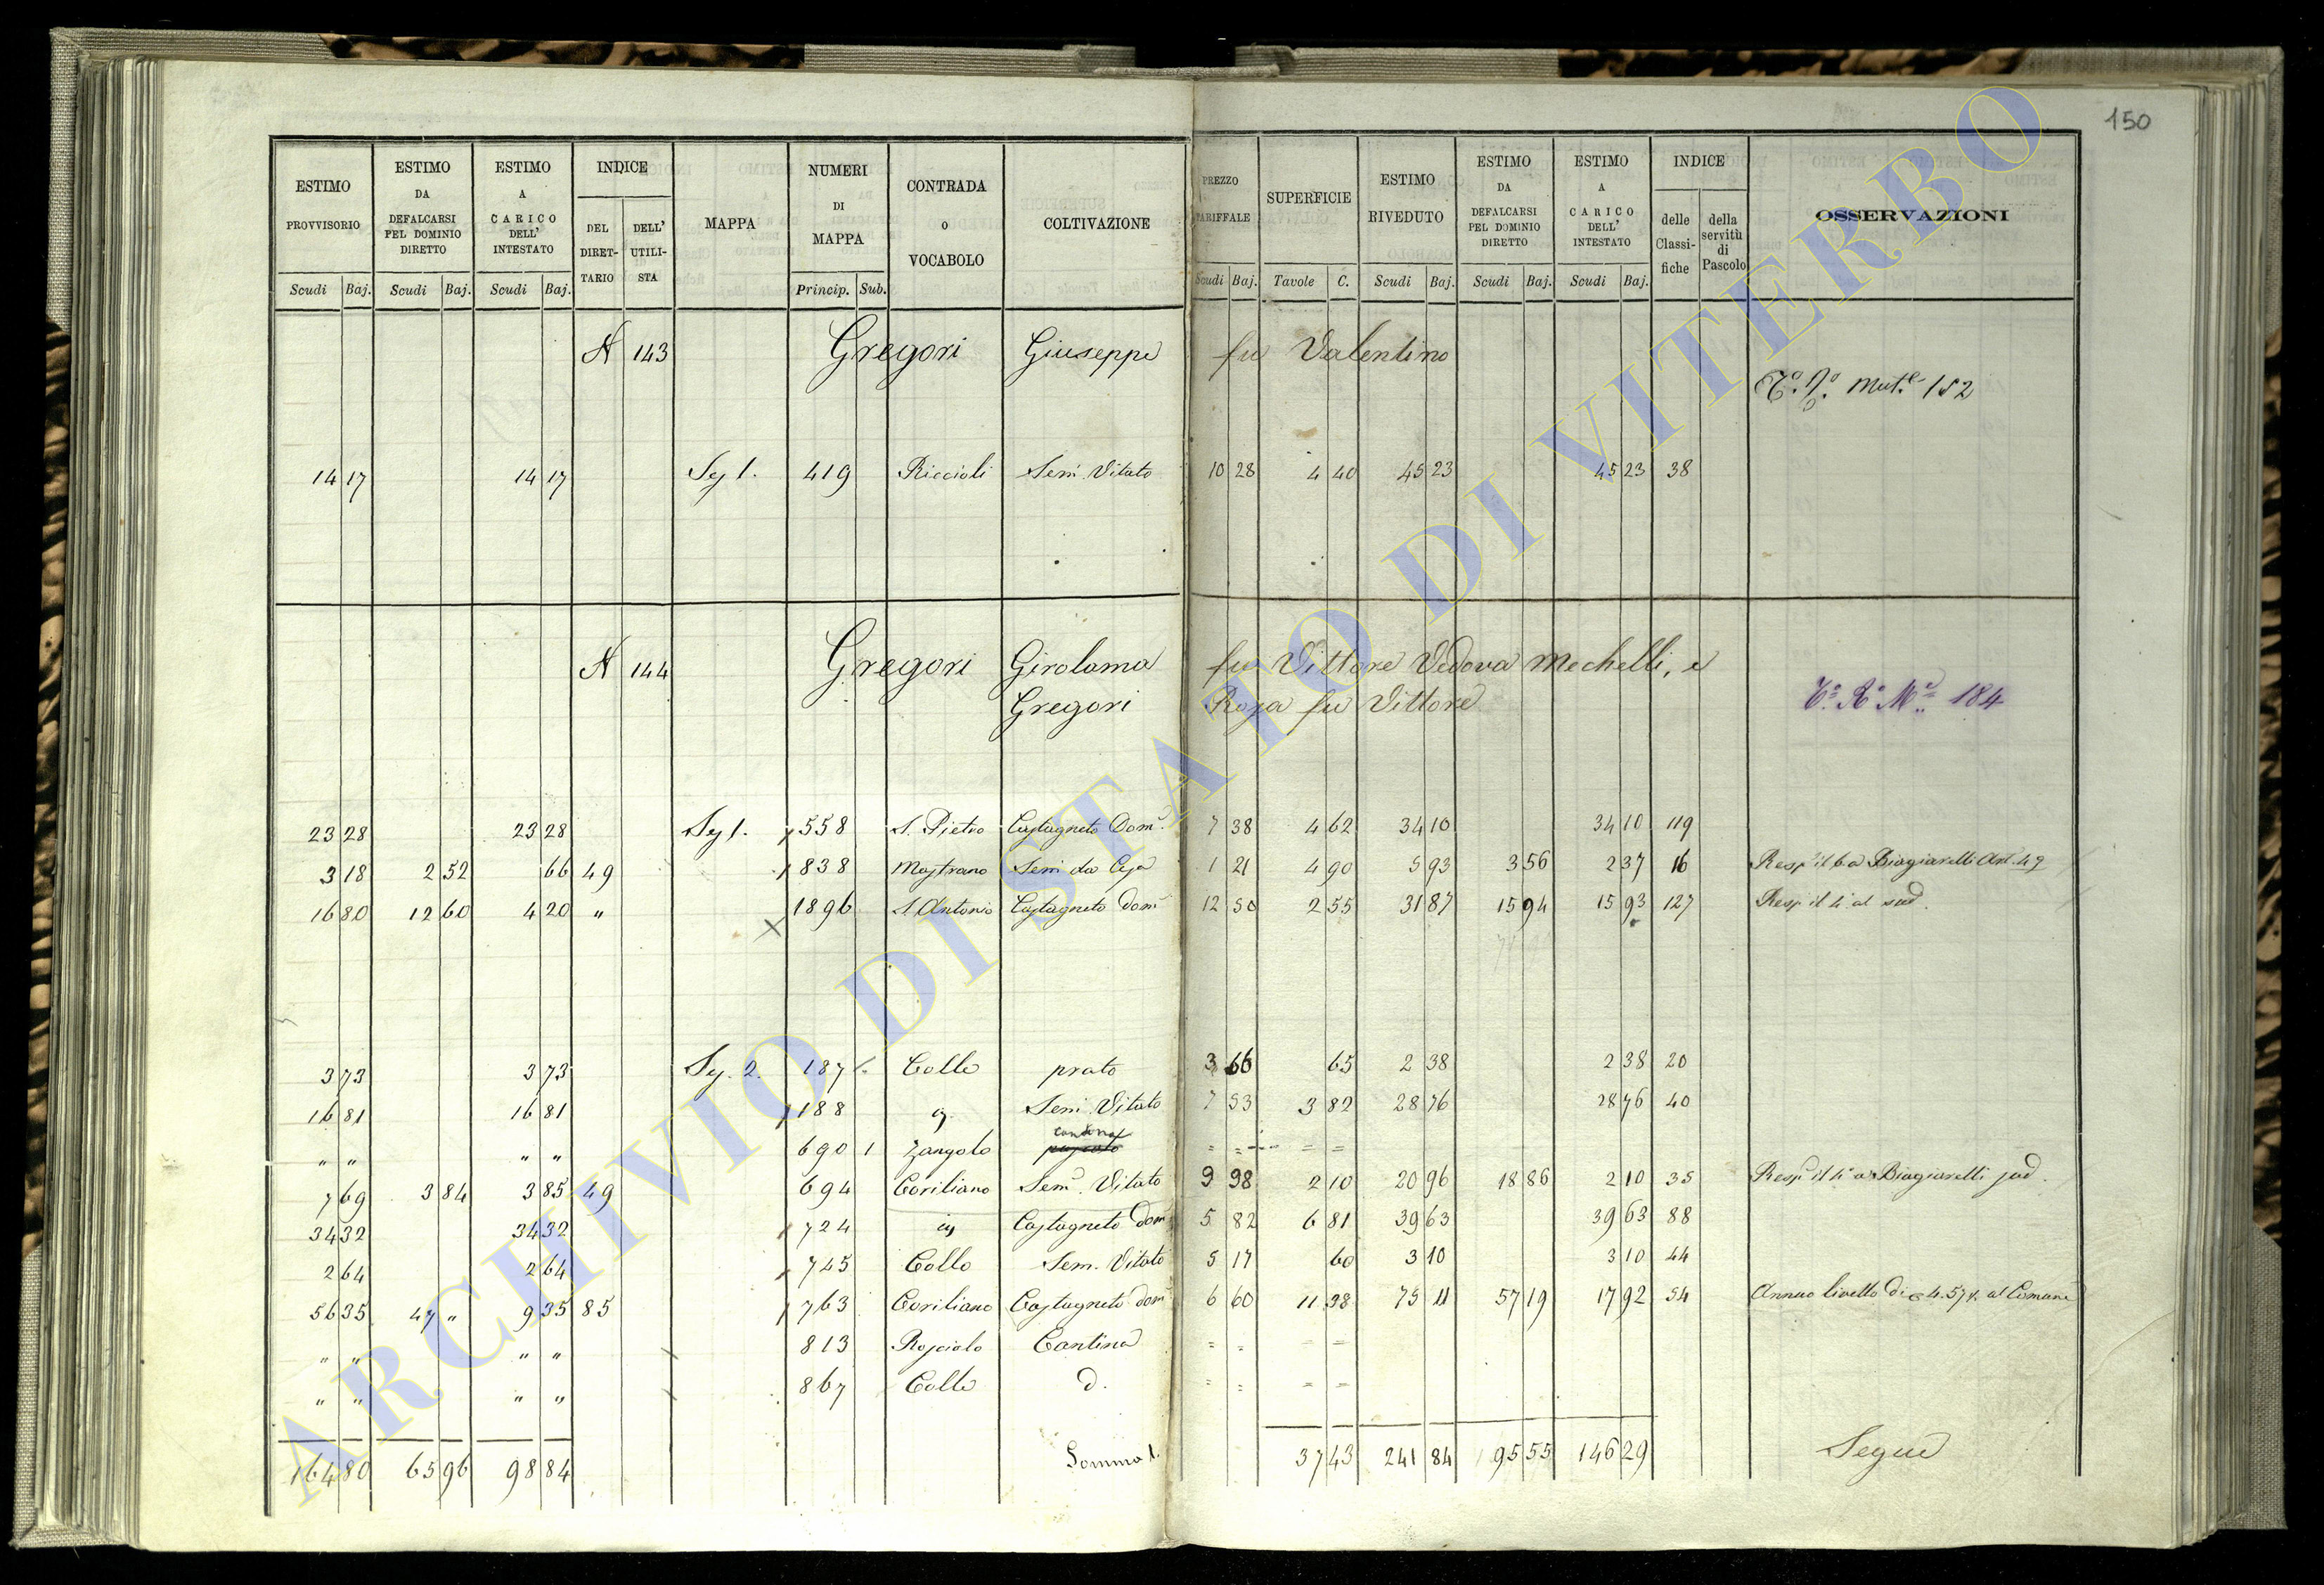 150
ESTIMO PROVVISORIO | ESTIMO DA DEFALCARSI PEL DOMINIO DIRETTO | ESTIMO A CARICO DELL' INTESTATO | INDICE | MAPPA | NUMERI DI MAPPA | CONTRADA O VOCABOLO | COLTIVAZIONE | PREZZO TARIFFALE | SUPERFICIE | ESTIMO RIVEDUTO | ESTIMO DA DEFALCARSI PEL DOMINIO DIRETTO | ESTIMO A CARICO DELL' INTESTATO | INDICE | OSSERVAZIONI
DEL DIRETTARIO | DELL' UTILISTA | delle Classifiche | della servitù di Pascolo
Scudi Baj. | Scudi Baj. | Scudi Baj. | Princip. Sub. | Scudi Baj. | Tavole C. | Scudi Baj. | Scudi Baj. | Scudi Baj.
N 143 Gregori Giuseppe fu Valentino
Mut.e 152
14 17 | 14 17 | Sez 1. | 419 | Riccioli | Sem. Vitato | 10 28 | 4 40 | 45 23 | 45 23 | 38
N 144 Gregori Girolama fu Vittore Vedova Mechelli, e
Gregori Rosa fu Vittore
184
23 28 | 23 28 | Sez 1. | 558 | S. Pietro | Castagneto Dom. | 7 38 | 4 62 | 34 10 | 34 10 | 119
3 18 | 2 52 | 66 | 49 | 838 | Mastrano | Sem | 1 21 | 4 90 | 5 93 | 3 56 | 2 37 | 16 | Resp. il a Biagiarelli Ant. 49
16 80 | 12 60 | 4 20 | " | 1896 | S. Antonio | Castagneto dom | 12 50 | 2 55 | 31 87 | 15 94 | 15 93 | 127 | Resp. il 4. al sud.
3 73 | 3 73 | Sez. 2. | 187 | Colle | prato | 3 66 | 65 | 2 38 | 2 38 | 20
16 81 | 16 81 | 188 | Sem. Vitato | 7 53 | 3 82 | 28 76 | 28 76 | 40
" " | " " | 690 1 | Zangolo | cantina | = = | = =
7 69 | 3 84 | 3 85 | 49 | 694 | Coriliano | Sem. Vitato | 9 98 | 2 10 | 20 96 | 18 86 | 2 10 | 35 | Resp. il 4. a Biagiarelli sud.
34 32 | 34 32 | 724 | Castagneto dom | 5 82 | 6 81 | 39 63 | 39 63 | 88
2 64 | 2 64 | 745 | Collo | Sem. Vitato | 5 17 | 60 | 3 10 | 3 10 | 44
56 35 | 47 " | 9 35 | 85 | 763 | Coriliano | Castagneto dom | 6 60 | 11 38 | 75 11 | 57 19 | 17 92 | 54 | Annuo livello di 4.57 al Comune
" " | " " | 813 | Rosciolo | Cantina | = = | = =
" " | " " | 867 | Colle | d. | = = | = =
164 80 | 65 96 | 98 84 | Somma 1. | 37 43 | 241 84 | 95 55 | 146 29 | Segue
ARCHIVIO DI STATO DI VITERBO